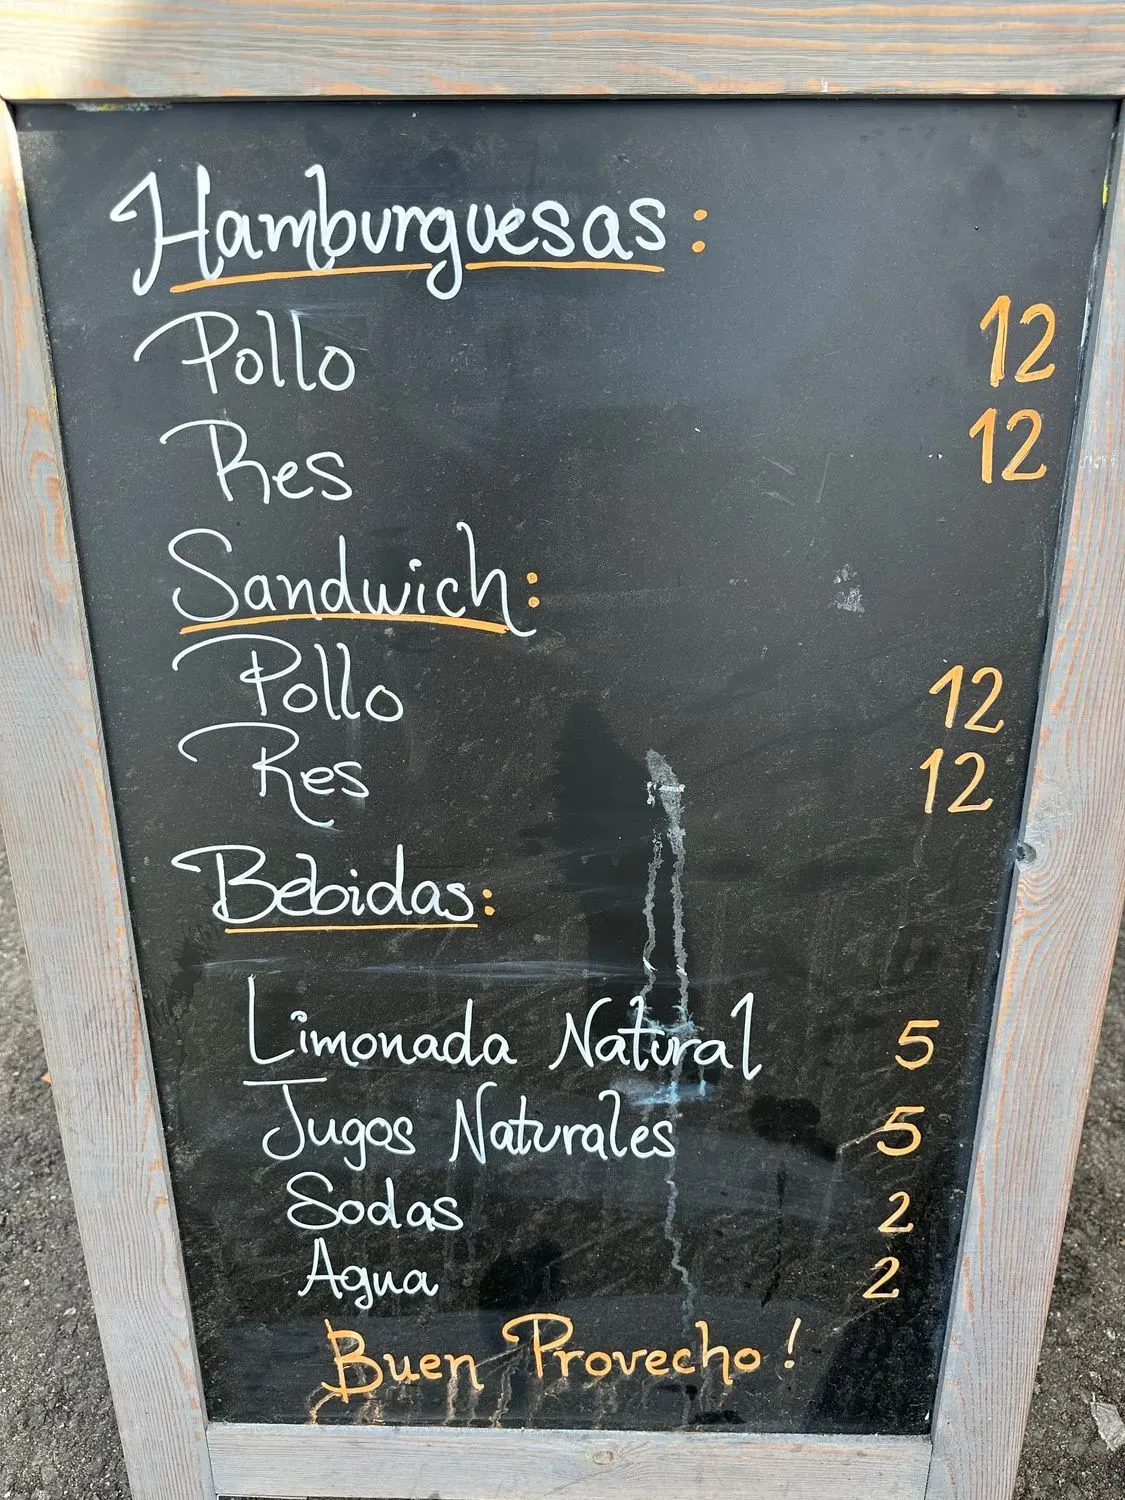 Hamburguesas:
Pollo 12
Res 12
Sandwich:
Pollo 12
Res 12
Bebidas:
Limonada Natural 5
Jugos Naturales 5
Sodas 2
Agua 2
Buen Provecho!